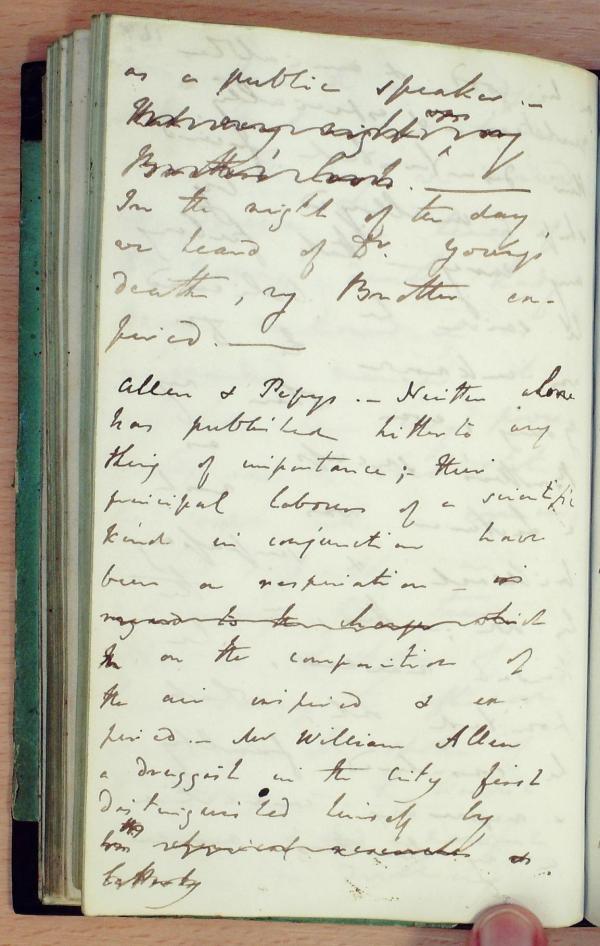 as a public speaker. —
That very night my
Brother's
In the night of the day
we heard of Dr. Young's
death, my Brother ex-
pired. —
Allen & Pepys. — Neither alone
has published hitherto any
thing of importance; - their
principal labours of a scientific
kind in conjunction have
been on respiration - in
regard to the change which
on the composition of
the air inspired & ex-
pired. — Mr William Allen
a druggist in the City first
distinguished himself by
his researches